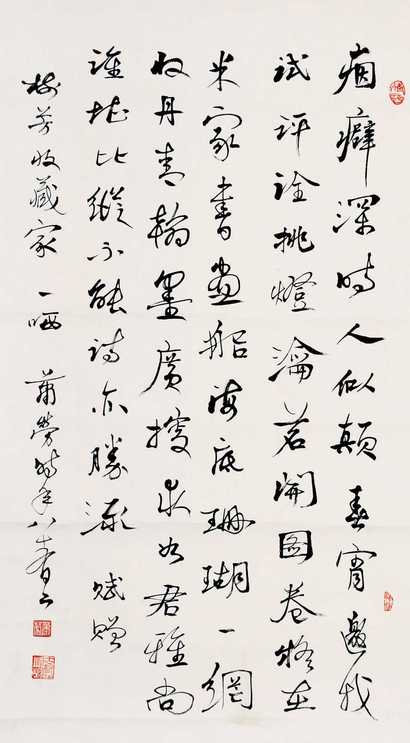 痼癖深時人似顛春宵邀我
試評詮挑燈瀹茗開圖卷在
米家書畫船海底珊瑚一網
收丹青翰墨廣搜求如君雅尚
誰堪比縱不能詩亦勝流 賦贈
樹芳收藏家 一哂 蕭勞時年八十有二